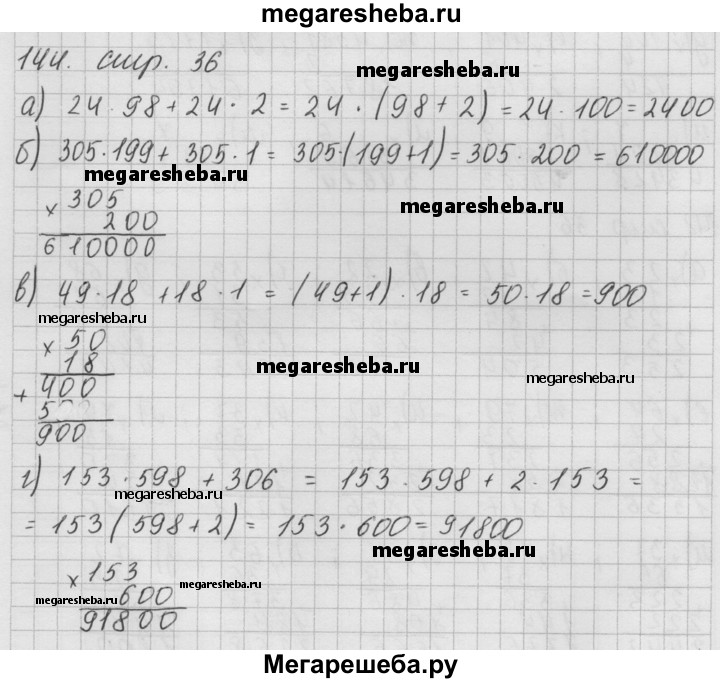 megaresheba.ru
144. стр. 36
megaresheba.ru
а) 24 · 98 + 24 · 2 = 24 · (98 + 2) = 24 · 100 = 2400
б) 305 · 199 + 305 · 1 = 305 · (199 + 1) = 305 · 200 = 610000
megaresheba.ru
× 305
megaresheba.ru
200
610000
в) 49 · 18 + 18 · 1 = (49 + 1) · 18 = 50 · 18 = 900
megaresheba.ru
× 50
18
megaresheba.ru
megaresheba.ru
+ 400
5
900
г) 153 · 598 + 306 = 153 · 598 + 2 · 153 =
megaresheba.ru
= 153 (598 + 2) = 153 · 600 = 91800
megaresheba.ru
× 153
megaresheba.ru
megaresheba.ru
600
91800
Мегарешеба.ру